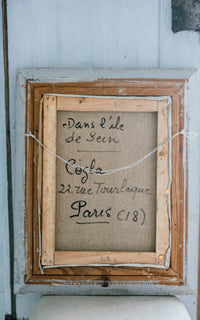 Dans l'île
de Sein
Cogla
22, rue Tourlaque
Paris (18)